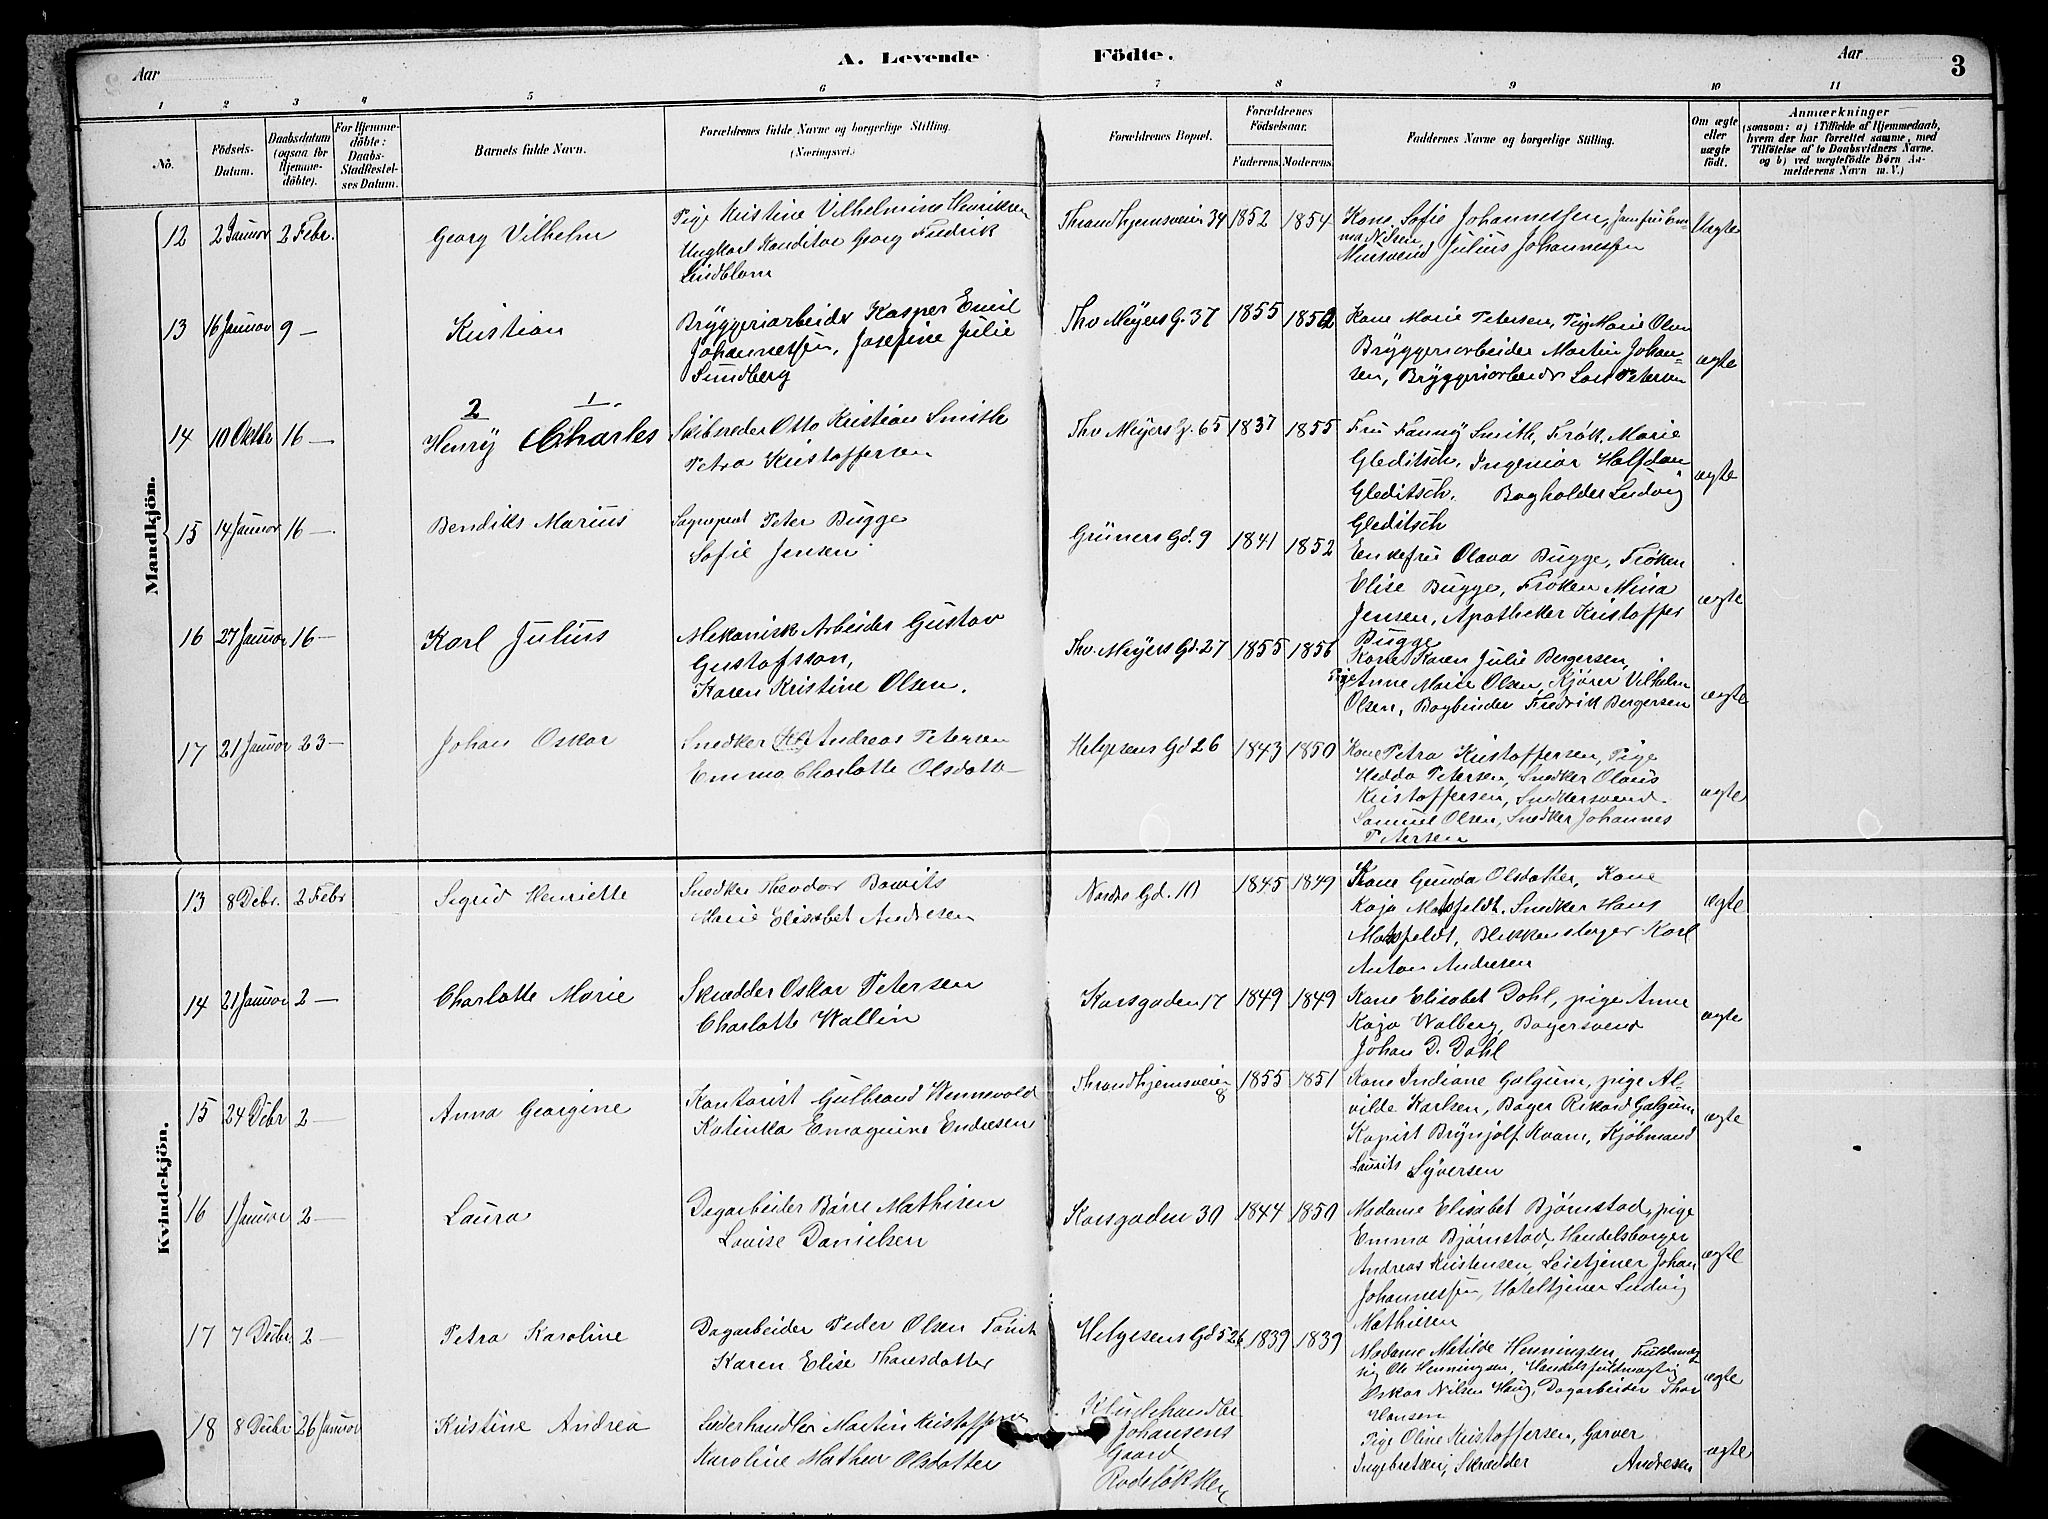 Aar
A. Levende Födte.
Aar
3
1 2 3 4 5 6 7 8 9 10 11
No.
Födsels-
Datum.
Daabsdatum
(ogsaa for
Hjemme-
döbte).
For Hjemme-
döbte:
Daabs-
Stadfæstel-
ses Datum.
Barnets fulde Navn.
Forældrenes fulde Navne og borgerlige Stilling.
(Næringsvei.)
Forældrenes Bopæl.
Forældrenes
Födselsaar.
Faderens. Moderens.
Faddernes Navne og borgerlige Stilling.
Om ægte
eller
uægte
födt.
Anmærkninger
(saasom: a) i Tilfælde af Hjemmedaab,
hvem der har forrettet samme, med
Tilföielse af to Daabsvidners Navne.
og b) ved uægtefödte Börn An-
melderens Navn m. V.)
Mandkjön.
12 2 Januar 2 Febr. Georg Vilhelm
Pige Kristine Vilhelmine Henriksen
Ungkarl Konditor Georg Fredrik
Lindblom
Throndhjemsveien 34 1852 1854
Kone Sofie Johannessen, Jomfru Em-
ma Nilsen
Mursvend Julius Johannessen
Uægte
13 16 Januar 9 — Kristian
Bryggeriarbeider Kasper Emil
Johannessen, Josefine Julie
Sundberg
Thv Meyers G. 37 1855 1852
Kone Marie Petersen, Pige Marie Olsen
Bryggeriarbeider Martin Johan-
sen, Bryggeriarbeider Petersen
ægte
14 10 Oktbr 16 —
2 1.
Henry Charles
Skibsreder Otto Kristian Smith
Petra Kristoffersen
Thv Meyers G. 65 1837 1855
Fru Fanny Smith, Frøk. Marie
Gleditsch, Ingeniør Halfdan
Gleditsch. Bogholder Ludvig
Gleditsch
ægte
15 14 Januar 16 — Bendiks Marius
Peter Bugge
Sofie Jensen
Grüners Gd. 9 1841 1852
Enkefru Olava Bugge, Frøken
Elise Bugge, Frøken Mina
Jensen, Apotheker Kristoffer
Bugge
ægte
16 27 Januar 16 — Karl Julius
Mekanisk Arbeider Gustav
Gustafsson,
Karen Kristine Olsen.
Thv. Meyers Gd. 27 1855 1856
Kone Karen Julie Bergersen,
Pige Anne Marie Olsen, Kjører Vilhelm
Olsen, Bogbinder Fredrik Bergersen
ægte
17 21 Januar 23 — Johan Oskar
Snedker Andreas Petersen
Emma Charlotte Olsdatter
Helgesens Gd 26 1843 1850
Kone Petra Kristoffersen, Pige
Hedda Petersen, Snedker Olaus
Kristoffersen, Snedkersvend
Samuel Olsen, Snedker Johannes
Petersen
ægte
Kvindekjön.
13 8 Debr. 2 Febr Sigrid Henriette
Snedker Theodor Bowits
Marie Elisabet Andresen
Nordre Gd. 10 1845 1849
Kone Gunda Olsdatter, Kone
Kaja Matsfeldt, Snedker Hans
Matsfeldt, Blikkenslager Karl
Anton Andresen
ægte
14 21 Januar 2 — Charlotte Marie
Skrædder Oskar Petersen
Charlotte Wallin
Korsgaden 17 1849 1849
Kone Elisabet Dahl, pige Anne
Kaja Walberg, Bagersvend
Johan D. Dahl
ægte
15 24 Debr 2 — Anna Georgine
Kontorist Gulbrand Wennevold
Katinka Emagnine Endresen
Throndhjemsveien
8 1855 1851
Kone Indiane Galgum, pige Al-
vilde Karlsen, Bager Rikard Galgum
Kopist Brynjolf Kvam, Kjøbmand
Laurits Syversen
ægte
16 1 Januar 2 — Laura
Dagarbeider Børre Mathisen
Lovise Danielsen
Korsgaden 30 1844 1850
Madame Elisabet Bjørnstad, pige
Emma Bjørnstad, Handelsborger
Andreas Kristensen, Leietjener Johan
Johannessen, Hoteltjener Ludvig
Mathiesen
ægte
17 7 Debr 2 — Petra Karoline
Dagarbeider Peder Olsen
Karen Elise Thoresdatter
Helgesens Gd 526 1839 1839
Madame Matilde Henningsen, Fuldmæg-
tig Ole Henningsen, Handelsfuldmægtig
Oskar Nilsen Haug, Dagarbeider Thor
Hansen
ægte
18 8 Debr 26 Januar Kristine Andrea
Læderhandler Martin Kristoffersen
Karoline Mathea Olsdatter
Kludehandler
Johansens
Gaard
Rodeløkken
Pige Oline Kristoffersen, Garver
Ingebretsen, Skrædder Andresen
ægte